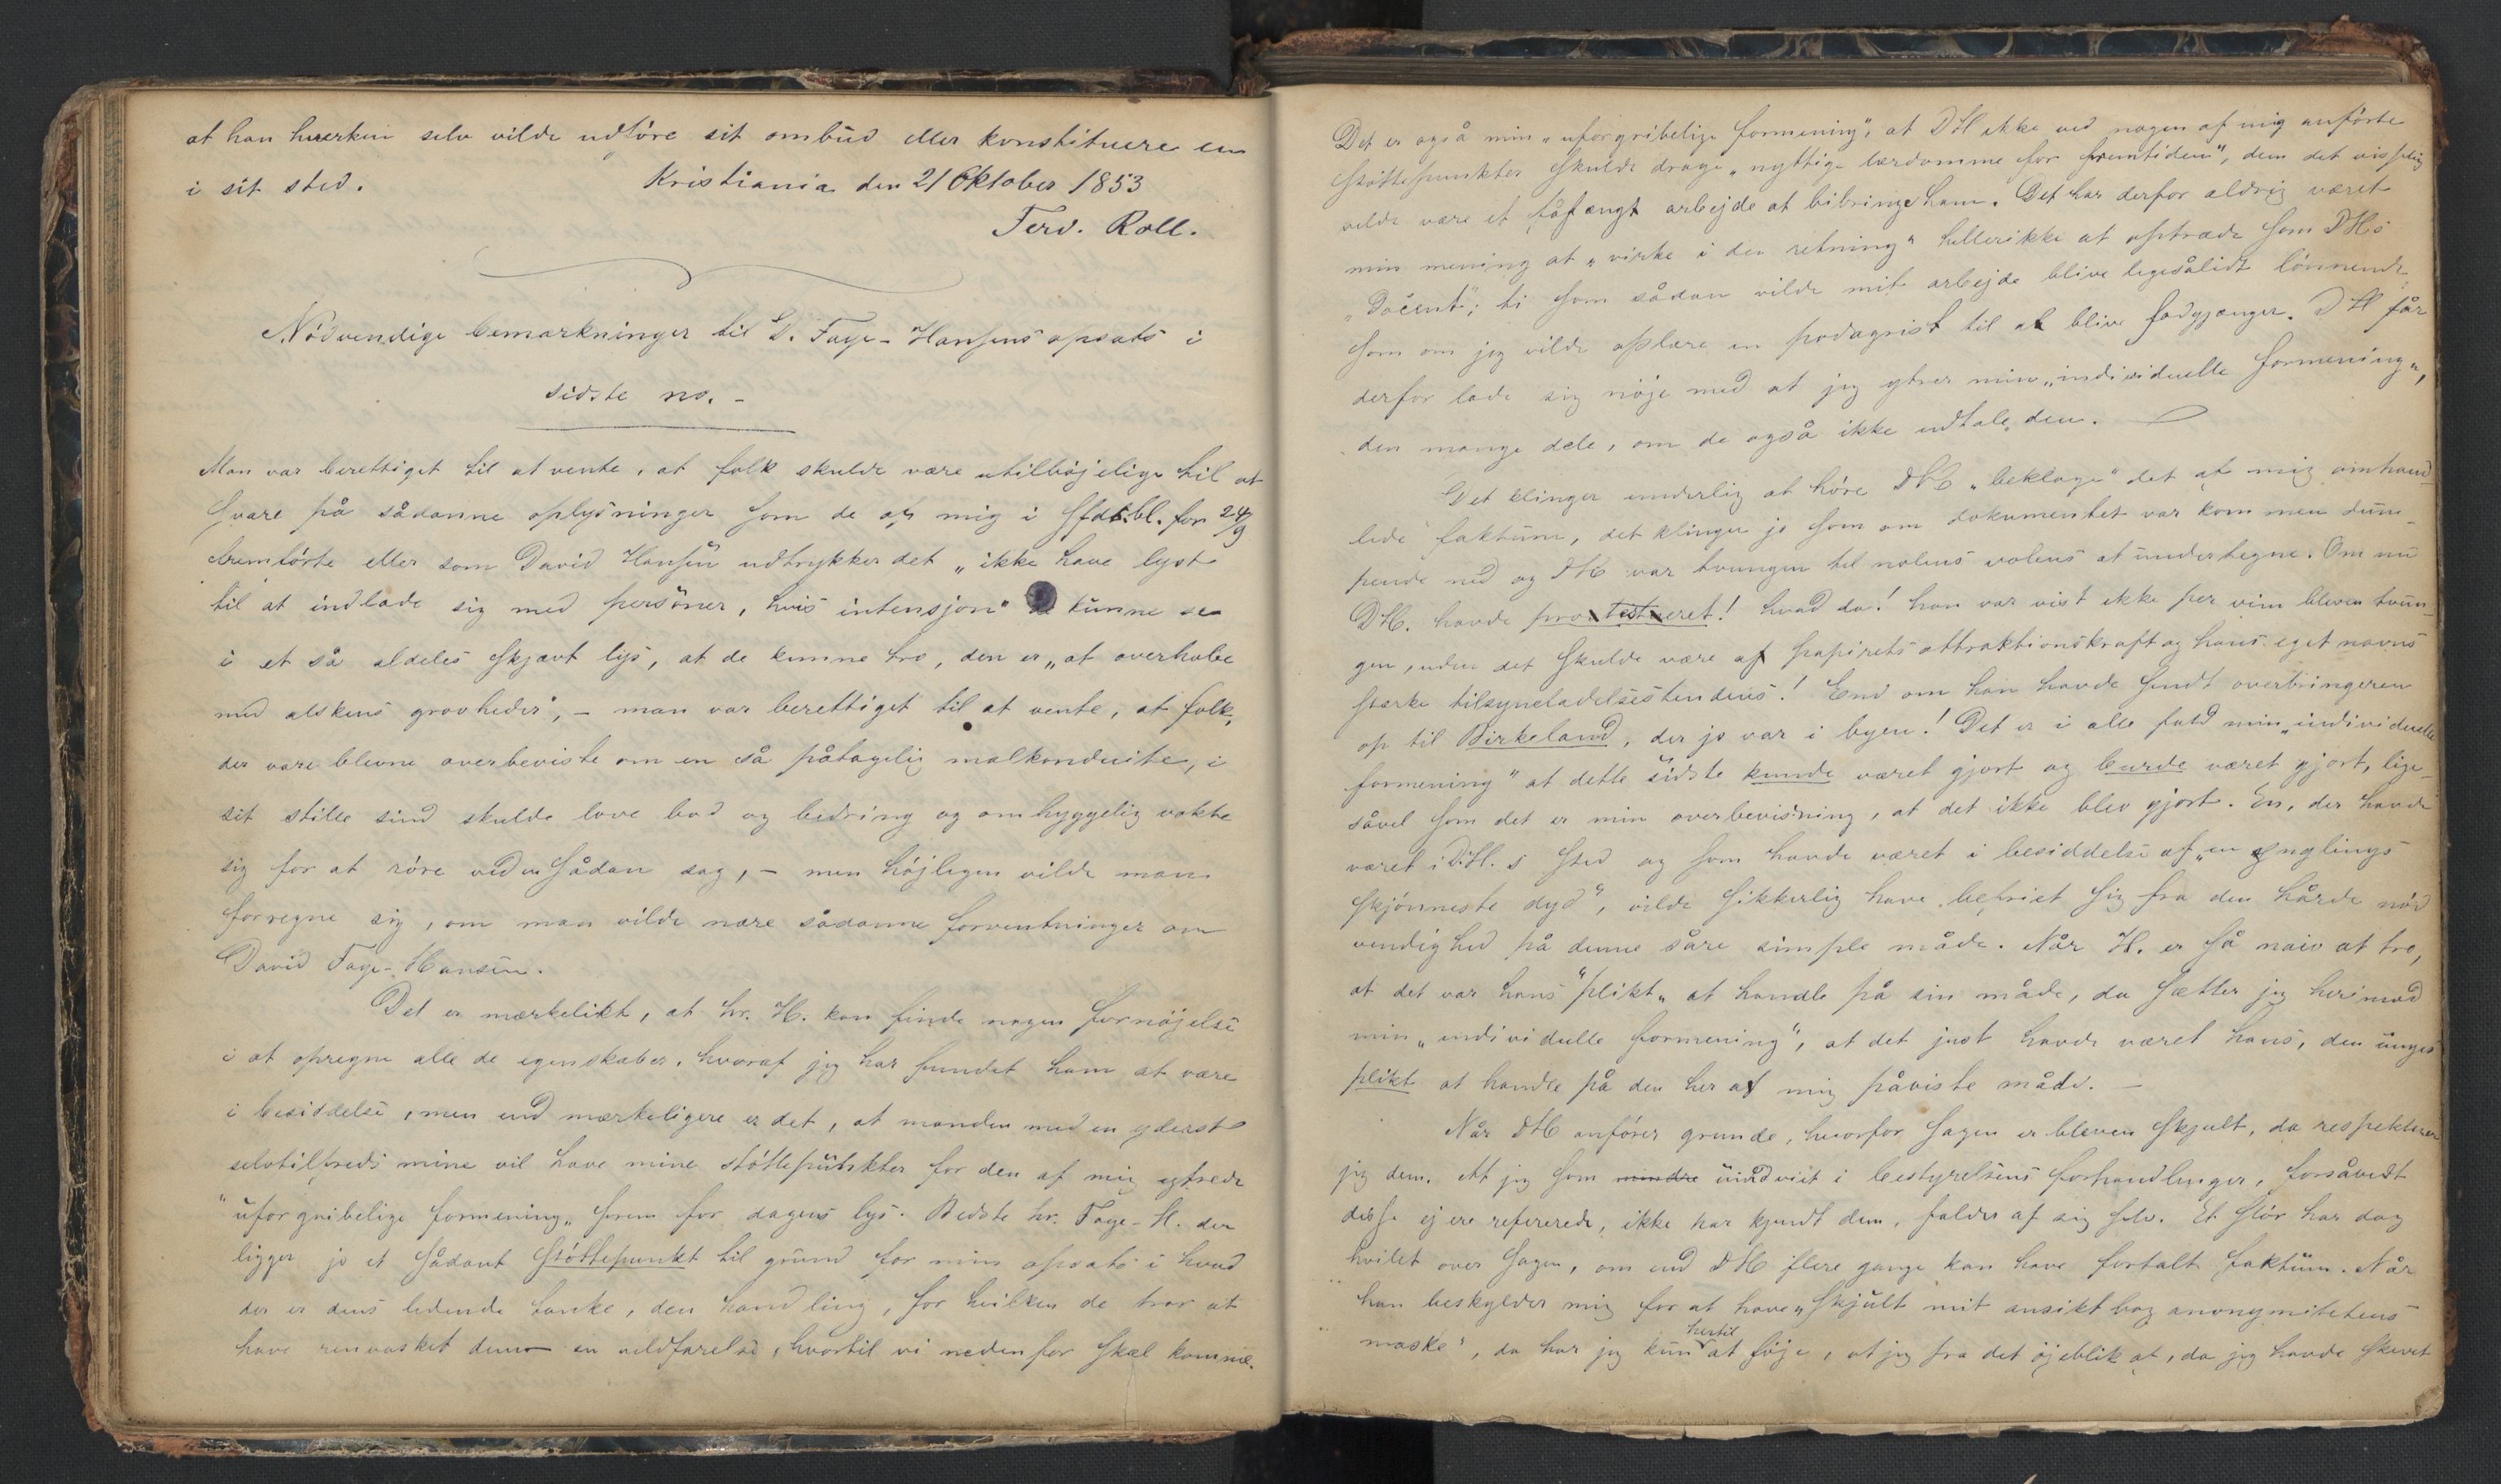 at han hverken selv vilde udføre sit ombud eller konstituere en
i sit sted.
Kristiania den 21 Oktober 1853
Ferd. Roll.
Nødvendige bemærkninger til D. Faye-Hansens opsats i
sidste no. -
Man var berettiget til at vente, at folk skulde være utilbøjelige til at
svare på sådanne oplysninger som de af mig i Sfdsbl. for 24/9
fremførte eller som David Hansen udtrykker det „ikke have lyst
til at indlade sig med persóner, hvis intensjon" de kunne se
i et så aldeles skjævt lys, at de kunne tro, den er „at overhobe
med alskens grovheder", - man var berettiget til at vente, at folk,
der vare blevne overbeviste om en så påtagelig malkonduite, i
sit stille sind skulde love bod og bedring og omhyggelig vokte
sig for at røre ved en sådan sag, - men højligen vilde man
forregne sig, om man vilde nære sådanne forventninger om
David Faye-Hansen.
Det er mærkelikt, at hr. H. kan finde nogen fornøjelse
i at opregne alle de egenskaber, hvoraf jeg har fundet ham at være
i besiddelse, men end mærkeligere er det, at manden med en yderst
selvtilfreds mine vil have mine støttepunkter for den af mig ytrede
"uforgribelige formening„ frem for dagens lys. Bedste hr. Faye-H. der
ligger jo et sådant støttepunkt til grund for min opsats i hvad
der er dens ledende tanke, den handling, for hvilken de tror at
have renvasket dem - en vildfarelse, hvortil vi nedenfor skal komme.
Det er også min „uforgribelige formening", at DH ikke ved nogen af mig anførte
støttepunkter skulde drage „nyttige lærdomme for fremtiden", dem det visselig
vilde være et fåfængt arbejde at bibringe ham. Det har derfor aldrig været
min mening at „virke i den retning" hellerikke at optræde som DHs
„Docent"; ti som sådan vilde mit arbejde blive ligesålidt lønnende
som om jeg vilde oplære en podagrist til at blive fodgjænger. DH får
derfor lade sig nøje med at jeg ytrer min „individuelle formening",
den mange dele, om de også ikke udtale den.
Det klinger underlig at høre DH „beklage" det af mig omhand-
lede faktum, det klinger jo som om dokumentet var kommen dum-
pende ned og DH var tvungen til nolens volens at undertegne. Om nu
DH. havde protesteret! hvad da! han var vist ikke per vim bleven tvun-
gen, uden det skulde være af papirets attraktionskraft og hans eget navns
stærke tilsyneladelsestendens! End om han havde sendt overbringeren
op til Birkeland, der jo var i byen! Det er i alle fald min „individuelle
formening" at dette sidste kunde været gjort og burde været gjort, lige-
såvel som det er min overbevisning, at det ikke blev gjort. En, der havde
været i D.H.s sted og som havde været i besiddelse af „en ynglings
skjønneste dyd", vilde sikkerlig have befriet sig fra den hårde nød
vendighed på denne såre simple måde. Når H. er så naiv at tro,
at det var hans "plikt„ at handle på sin måde, da sætter jeg herimod
min „individuelle formening", at det just havde været hans, den unges
plikt at handle på den her af mig påviste måde. -
Når DH anfører grunde, hvorfor sagen er bleven skjult, da respekterer
jeg dem. At jeg som mindre uindviet i bestyrelsens forhandlinger, forsåvidt
disse ej ere refererede, ikke har kjendt dem, falder af sig selv. Et slør har dog
hvilet over sagen, om end DH flere gange kan have fortalt faktum. Når
han beskylder mig for at have „skjult mit ansikt bag anonymitetens
maske", da har jeg kun hertil at føje, at jeg fra det øjeblik af, da jeg havde skrevet